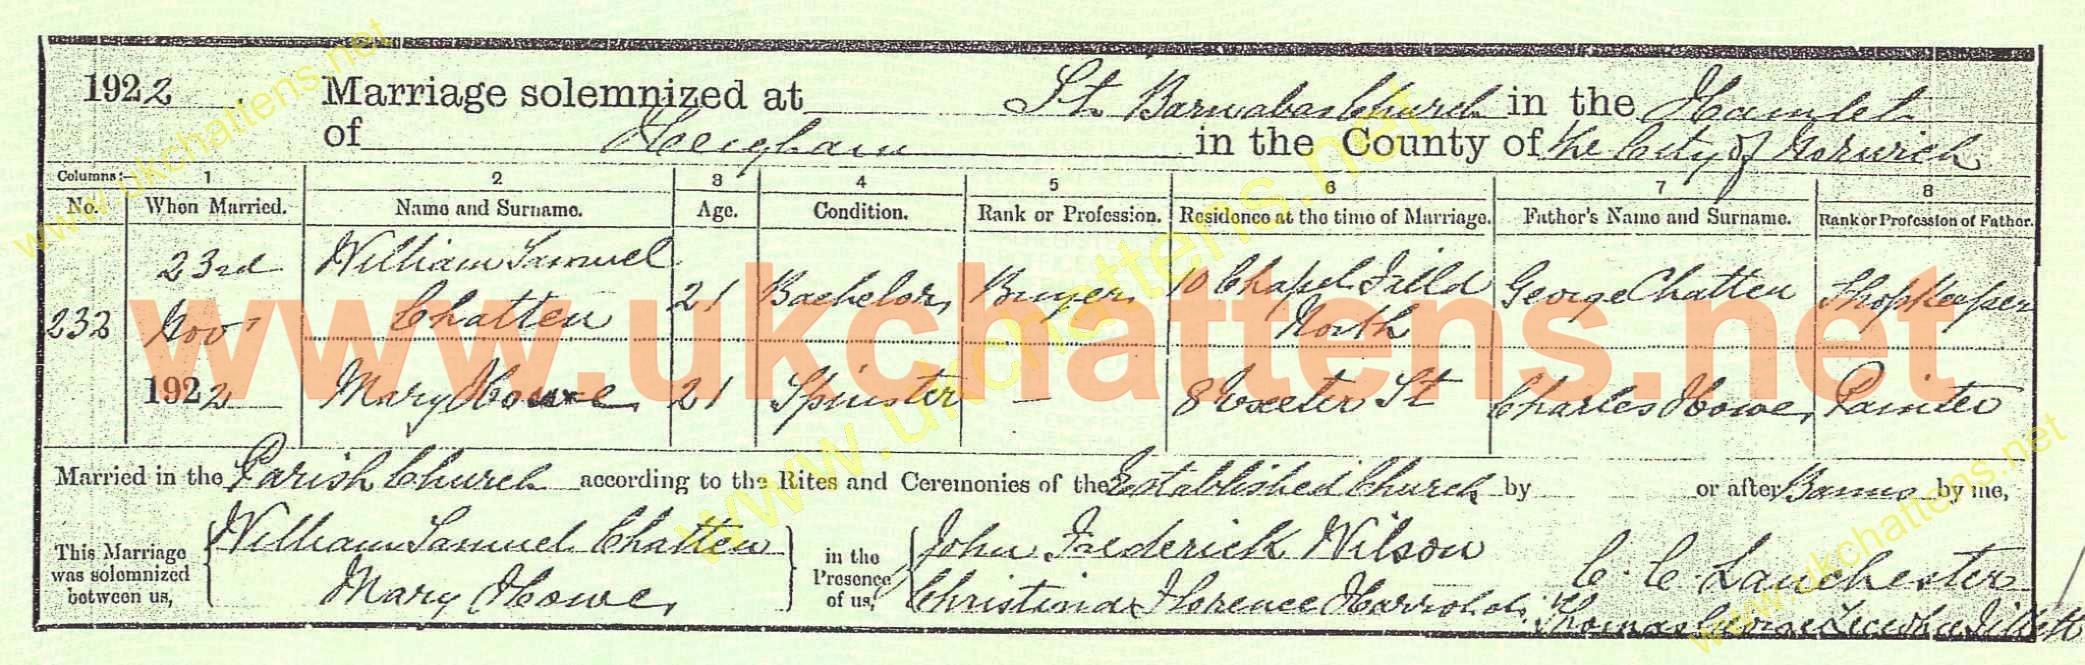 1922 Marriage solemnized at St. Barnabas Church in the Hamlet
of Heigham in the County of the City of Norwich
Columns:— 1 2 3 4 5 6 7 8
No. When Married. Name and Surname. Age. Condition. Rank or Profession. Residence at the time of Marriage. Father's Name and Surname. Rank or Profession of Father.
232 23rd Nov 1922
William Samuel Chatten 21 Bachelor Buyer 10 Chapel Field North George Chatten Shopkeeper
Mary Howe 21 Spinster — 8 Exeter St Charles Howe Painter
Married in the Parish Church according to the Rites and Ceremonies of the Established Church by or after Banns by me,
This Marriage was solemnized between us,
William Samuel Chatten
Mary Howe
in the Presence of us,
John Frederick Wilson
Christina Florence
C. C. Lanchester
Thomas George
www.ukchattens.net
www.ukchattens.net
www.ukchattens.net
www.ukchattens.net
www.ukchattens.net